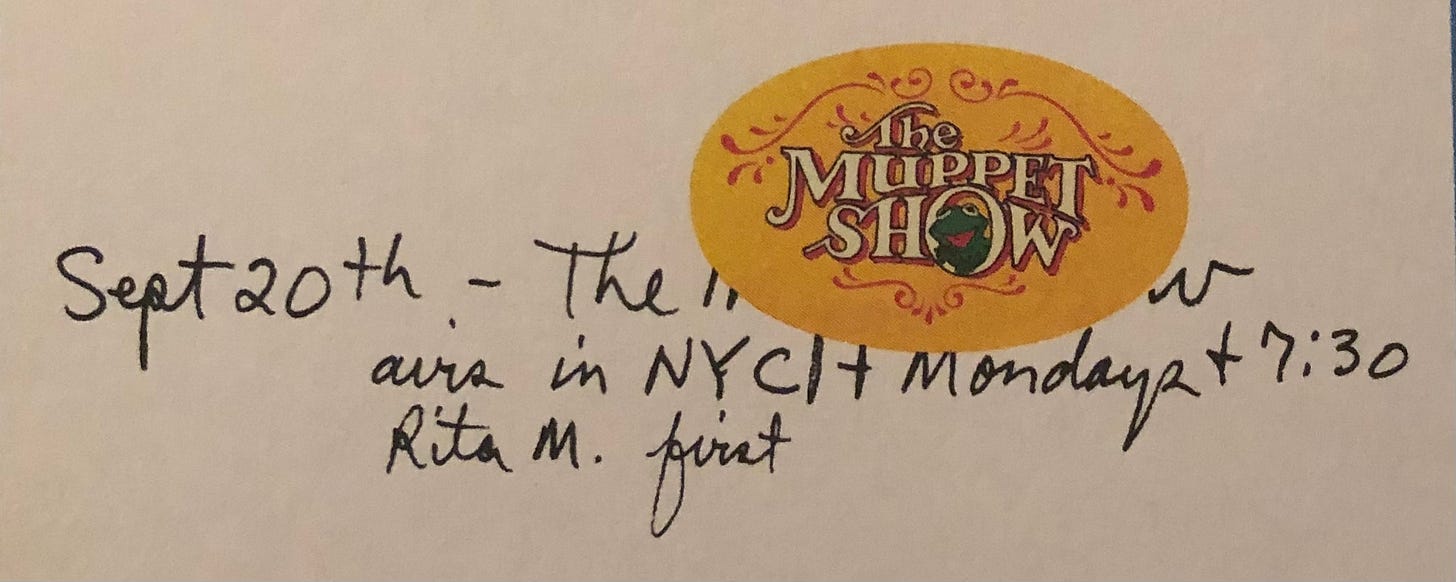 The
MUPPET
SHOW
Sept 20th - The
airs in NYC + Mondays + 7:30
Rita M. first